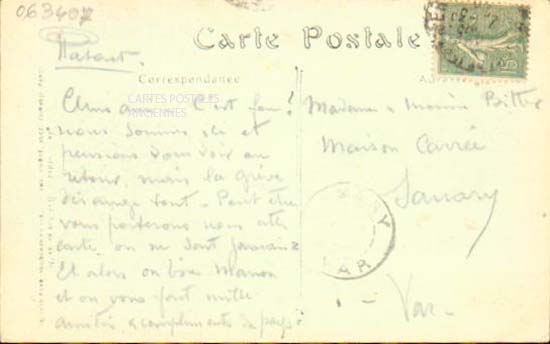 063407
Carte Postale
Correspondance
CARTES POSTALES
ANCIENNES
C'est fou!
nous sommes ici et
pensions vous voir au
retour, mais la grève
dérange tout. Peut être
vous porterons nous cette
carte on ne sait jamais
Et alors on bise Manon
et on vous fait mille
amitiés & compliments du pays.
Madame & Monsieur
Maison Carrée
Sanary
Var